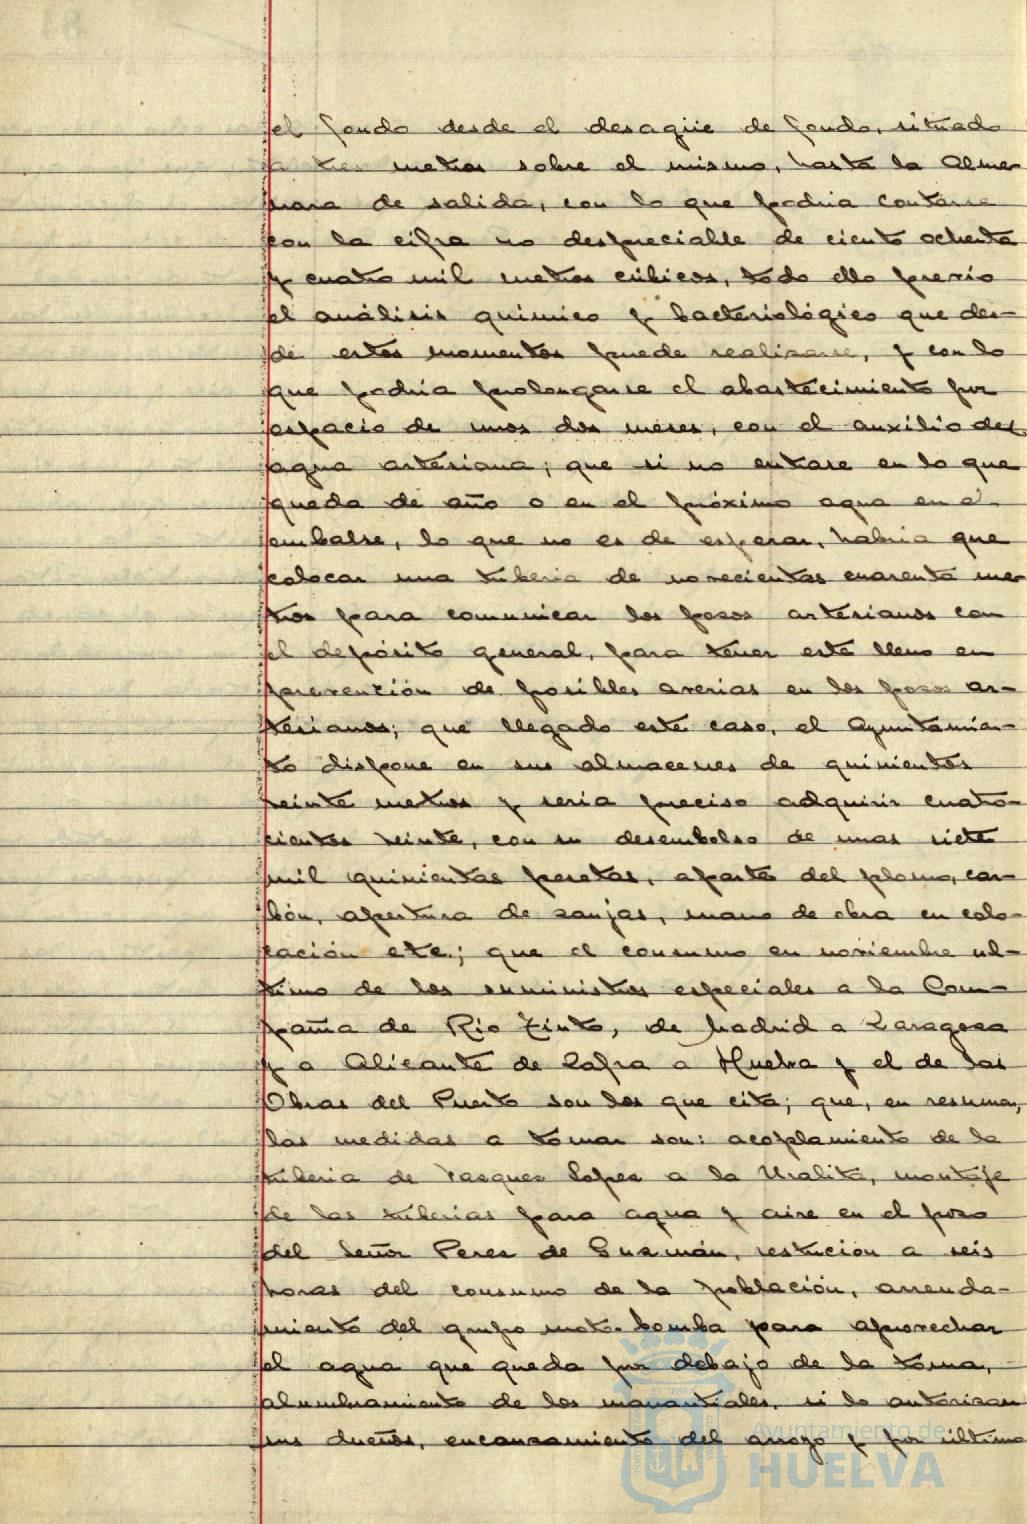 el fondo desde el desagüe de fondo, situado
a tres metros sobre el mismo, hasta la Alme-
nara de salida, con lo que podria contarse
con la cifra no despreciable de ciento ochenta
y cuatro mil metros cúbicos, todo ello previo
el análisis quimico y bacteriológico que des-
de estos momentos puede realizarse, y con lo
que podria prolongarse el abastecimiento por
espacio de unos dos meses, con el auxilio del
agua artesiana; que si no entrase en lo que
queda de año o en el próximo agua en el
embalse, lo que no es de esperar, habria que
colocar una tuberia de novecientos cuarenta me-
tros para comunicar los posos artesianos con
el depósito general, para tener este lleno en
prevención de posibles averias en los posos ar-
tesianos; que llegado este caso, el Ayuntamien-
to dispone en sus almacenes de quinientos
veinte metros y seria preciso adquirir cuatro-
cientos veinte, con un desembolso de unas siete
mil quinientas pesetas, aparte del plomo, car-
bón, apertura de sanjas, mano de obra en colo-
cación etc.; que el consumo en noviembre ul-
timo de los suministros especiales a la Com-
pañia de Rio Tinto, de Madrid a Zaragosa
y a Alicante de Zafra a Huelva y el de las
Obras del Puerto son los que cita; que, en resumen,
las medidas a tomar son: acoplamiento de la
tuberia de Vasques Lopes a la Uralita, montaje
de las tuberias para agua y aire en el poso
del Señor Peres de Gusmán, restución a seis
horas del consumo de la población, arrenda-
miento del grupo moto-bomba para aprovechar
el agua que queda por debajo de la toma,
alumbramiento de los manantiales, si lo autorisan
sus dueños, encausamiento del arroyo y por último
Ayuntamiento de
HUELVA